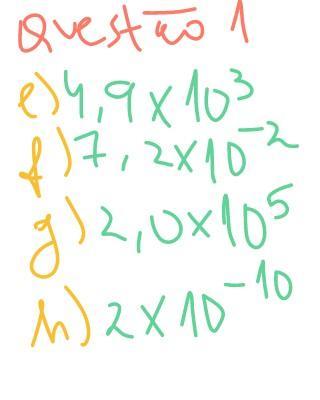 Questão 1
e) 4,9 x 10³
f) 7,2 x 10⁻²
g) 2,0 x 10⁵
h) 2 x 10⁻¹⁰